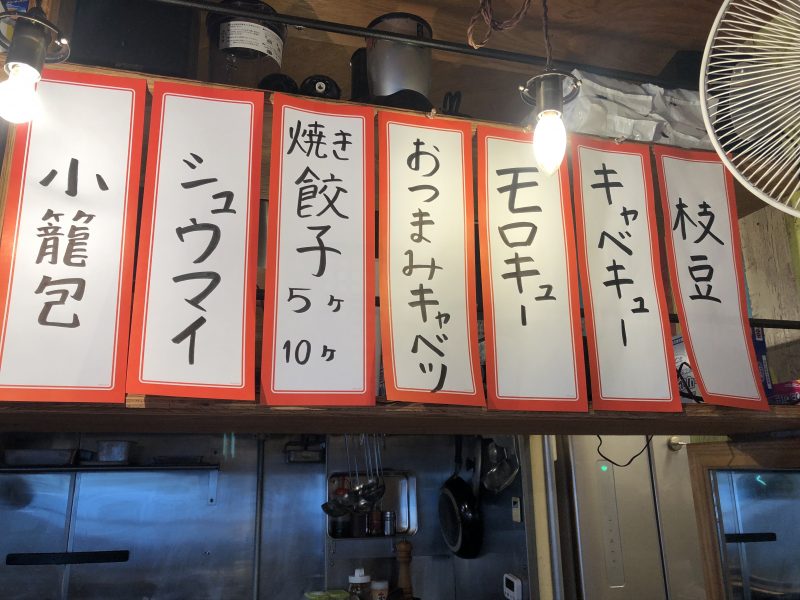 枝豆
キャベキュー
モロキュー
おつまみキャベツ
焼き餃子
5ヶ
10ヶ
シュウマイ
小籠包